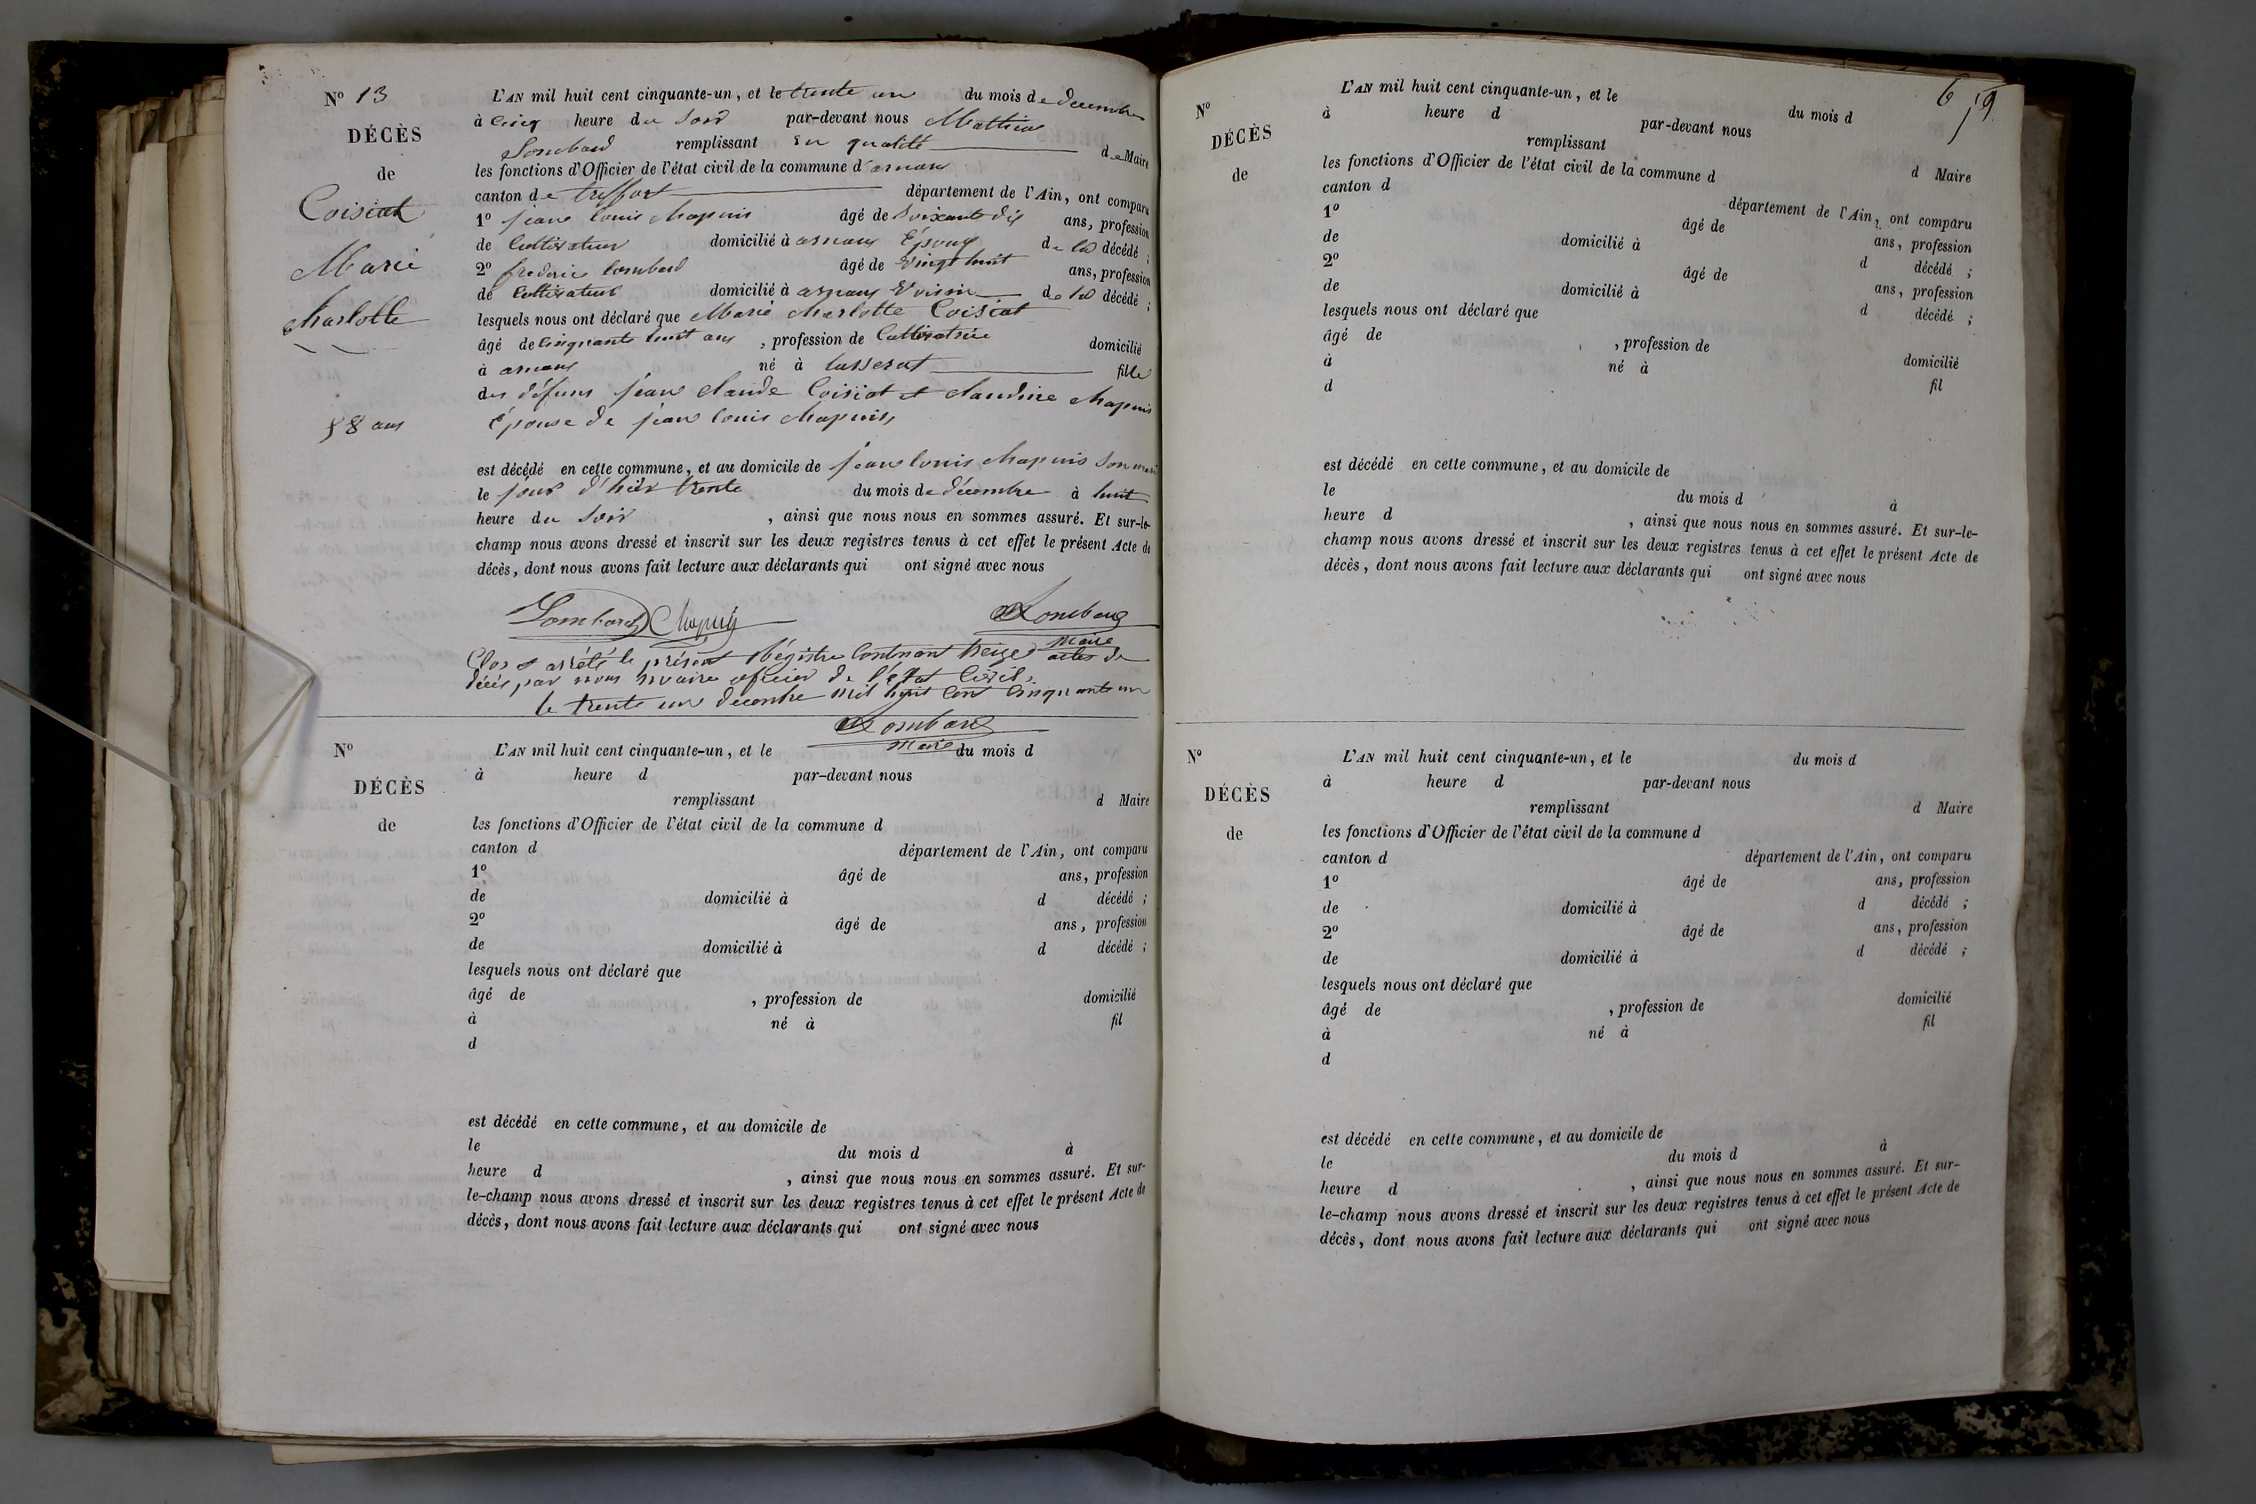 N° 13
DÉCÈS
de
Coisiat
Marie
charlotte
58 ans
L'AN mil huit cent cinquante-un, et le trente un du mois de decembre
à cinq heure du Soir par-devant nous Mathieu
Lombard remplissant en qualité de Maire
les fonctions d'Officier de l'état civil de la commune d'arnans
canton de treffort département de l'Ain, ont comparu
1° jean louis chapuis âgé de soixante dix ans, profession
de Cultivateur domicilié à arnans Époux de la décédé ;
2° frederic lombard âgé de vingt huit ans, profession
de Cultivateur domicilié à arnans Voisin de la décédé ;
lesquels nous ont déclaré que Marie charlotte Coisiat
âgé de cinquante huit ans , profession de Cultivatrice domicilié
à arnans né à fille
des défuns jean claude Coisiat et claudine chapuis
épouse de jean louis chapuis,
est décédé en cette commune, et au domicile de jean louis chapuis son mari
le jour d'hier trente du mois de décembre à huit
heure du soir , ainsi que nous nous en sommes assuré. Et sur-le-
champ nous avons dressé et inscrit sur les deux registres tenus à cet effet le présent Acte de
décès, dont nous avons fait lecture aux déclarants qui ont signé avec nous
Lombard Chapuis Lombard
Maire
Clos et arrété le présent Régistre Contenant treize actes de
décés par nous maire oficier de l'état Civil,
le trente un decembre mil huit cent cinquante un
Lombard
Maire
N°
DÉCÈS
de
L'AN mil huit cent cinquante-un, et le du mois d
à heure d par-devant nous
remplissant d Maire
les fonctions d'Officier de l'état civil de la commune d
canton d département de l'Ain, ont comparu
1° âgé de ans, profession
de domicilié à d décédé ;
2° âgé de ans, profession
de domicilié à d décédé ;
lesquels nous ont déclaré que
âgé de , profession de domicilié
à né à fil
d
est décédé en cette commune, et au domicile de
le du mois d à
heure d , ainsi que nous nous en sommes assuré. Et sur-
le-champ nous avons dressé et inscrit sur les deux registres tenus à cet effet le présent Acte de
décès, dont nous avons fait lecture aux déclarants qui ont signé avec nous
6
N°
DÉCÈS
de
L'AN mil huit cent cinquante-un, et le du mois d
à heure d par-devant nous
remplissant d Maire
les fonctions d'Officier de l'état civil de la commune d
canton d département de l'Ain, ont comparu
1° âgé de ans, profession
de domicilié à d décédé ;
2° âgé de ans, profession
de domicilié à d décédé ;
lesquels nous ont déclaré que
âgé de , profession de domicilié
à né à fil
d
est décédé en cette commune, et au domicile de
le du mois d à
heure d , ainsi que nous nous en sommes assuré. Et sur-le-
champ nous avons dressé et inscrit sur les deux registres tenus à cet effet le présent Acte de
décès, dont nous avons fait lecture aux déclarants qui ont signé avec nous
N°
DÉCÈS
de
L'AN mil huit cent cinquante-un, et le du mois d
à heure d par-devant nous
remplissant d Maire
les fonctions d'Officier de l'état civil de la commune d
canton d département de l'Ain, ont comparu
1° âgé de ans, profession
de domicilié à d décédé ;
2° âgé de ans, profession
de domicilié à d décédé ;
lesquels nous ont déclaré que
âgé de , profession de domicilié
à né à fil
d
est décédé en cette commune, et au domicile de
le du mois d à
heure d , ainsi que nous nous en sommes assuré. Et sur-
le-champ nous avons dressé et inscrit sur les deux registres tenus à cet effet le présent Acte de
décès, dont nous avons fait lecture aux déclarants qui ont signé avec nous